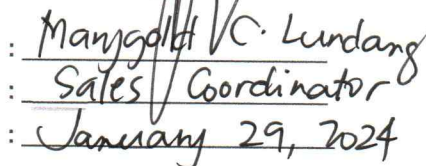 : Marygold C. Lundang
: Sales Coordinator
: January 29, 2024